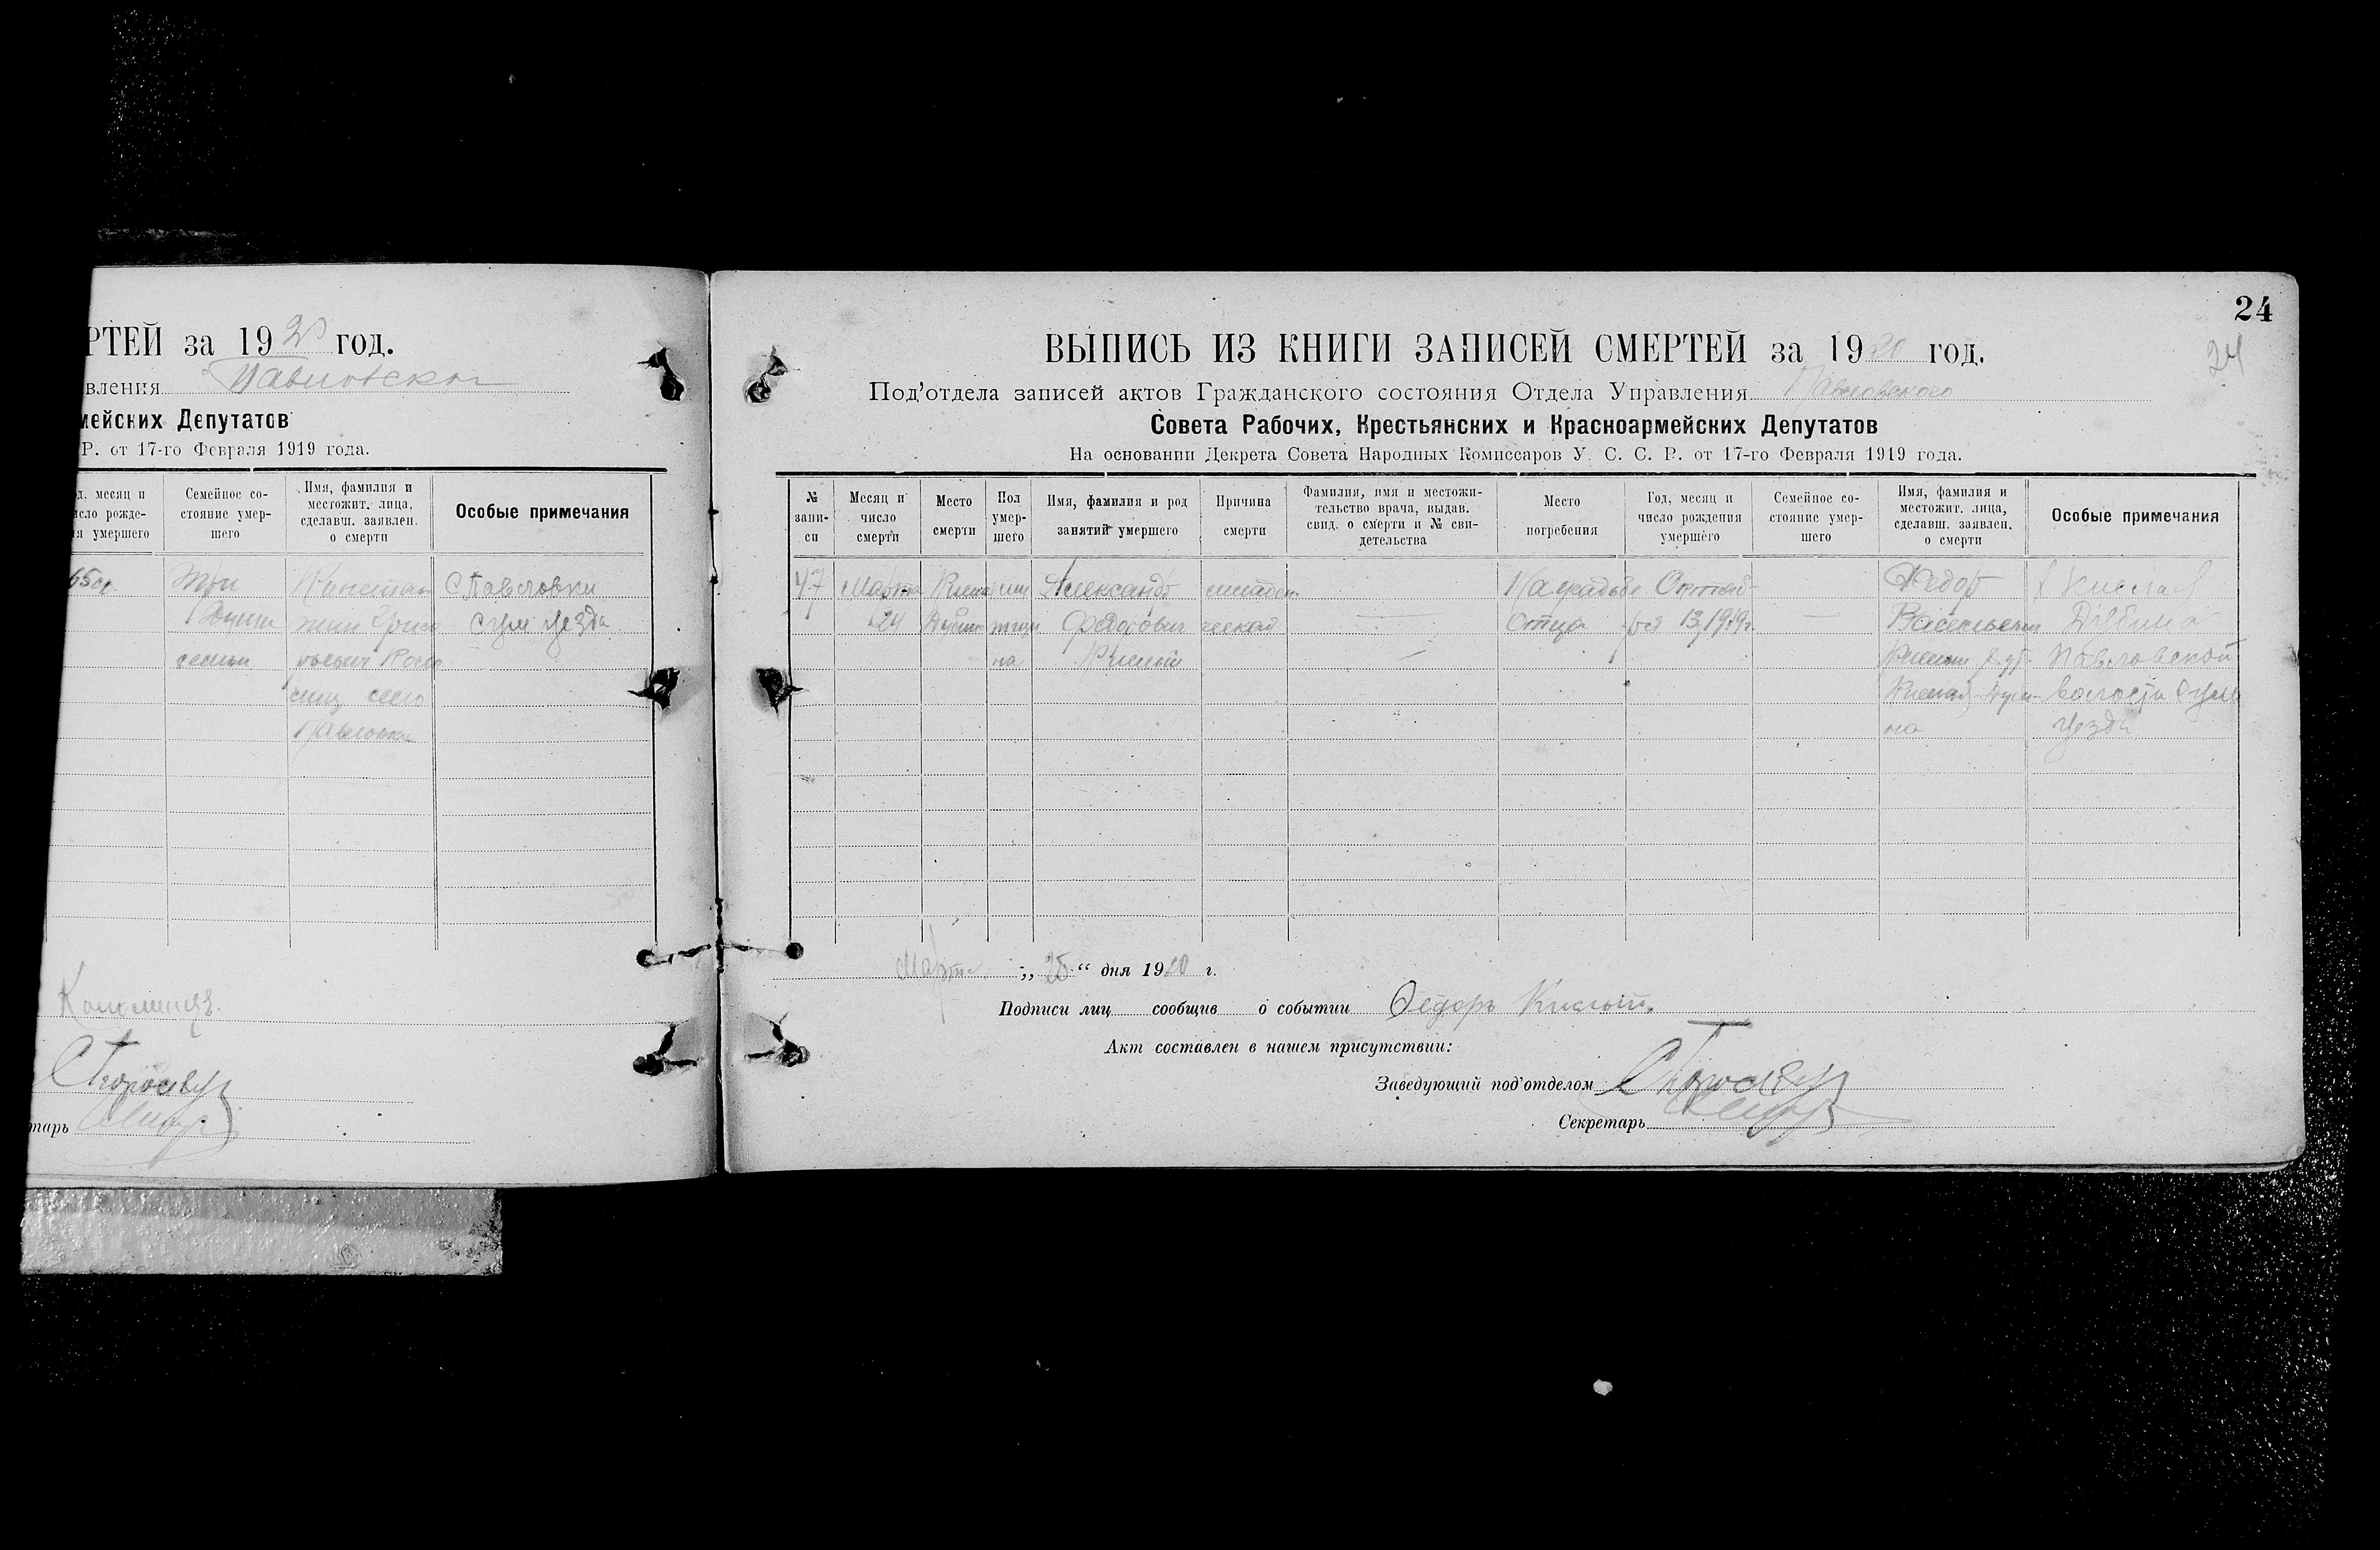 РТЕЙ за 1920 год.
вления Павловског
мейских Депутатов
Р. от 17-го Февраля 1919 года.
д, месяц и
исло рожде-
ия умершего
Семейное со-
стояние умер-
шего
Имя, фамилия и
местожит. лица,
сделавш. заявлен.
о смерти
Особые примечания
65 л.
семьи
Констан
тин Григо
рьевич Коло
миец село
Павловки
С Павловки
Сум уезда
Коломиецъ.
тарь
24
24
ВЫПИСЬ ИЗ КНИГИ ЗАПИСЕЙ СМЕРТЕЙ за 1920 год.
Под'отдела записей актов Гражданского состояния Отдела Управления Павловского
Совета Рабочих, Крестьянских и Красноармейских Депутатов
На основании Декрета Совета Народных Комиссаров У. С. С. Р. от 17-го Февраля 1919 года.
№
запи-
си
Месяц и
число
смерти
Место
смерти
Пол
умер-
шего
Имя, фамилия и род
занятий умершего
Причина
смерти
Фамилия, имя и местожи-
тельство врача, выдав.
свид. о смерти и № сви-
детельства
Место
погребения
Год, месяц и
число рождения
умершего
Семейное со-
стояние умер-
шего
Имя, фамилия и
местожит. лица,
сделавш. заявлен.
о смерти
Особые примечания
47
Марта
24
Кисла
Дубин
на
Александр
Федорович
Кислый
младен
ческая
На усадьбе
Отца
Октяб-
ря 13, 1919 г.
Федор
Васильевич
Кислый
Кислая-Дуби-
на
х Кислая
Дубина
Павловской
волости Сумс
уезда
Марта „25“ дня 1920 г.
Подписи лиц сообщив о событии Федоръ Кислый.
Акт составлен в нашем присутствии:
Заведующий под'отделом
Секретарь